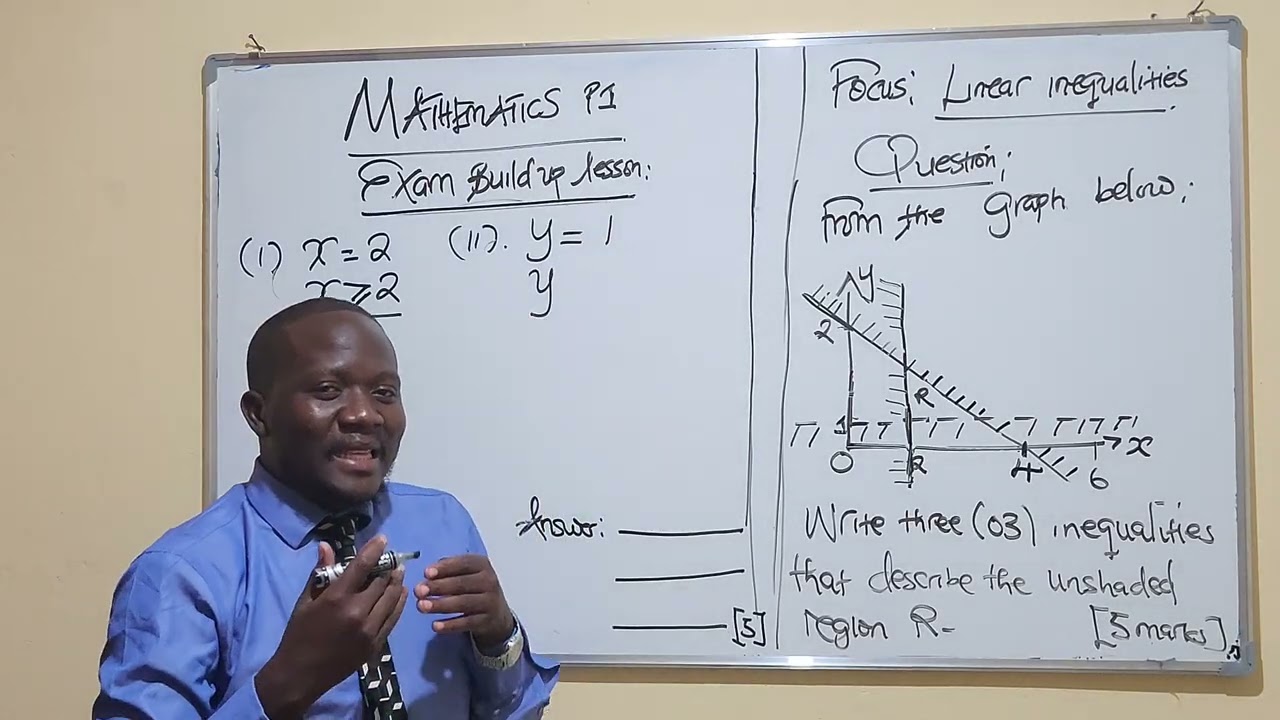 MATHEMATICS P1
Exam Build up lesson:
(I) x = 2
(II). y = 1
x ⩾ 2
y
Answer:
[5]
Focus: Linear inequalities
Question:
From the graph below:
y
2
R
1
x
0
2
4
6
Write three (03) inequalities
that describe the unshaded
region R.
[5 marks]